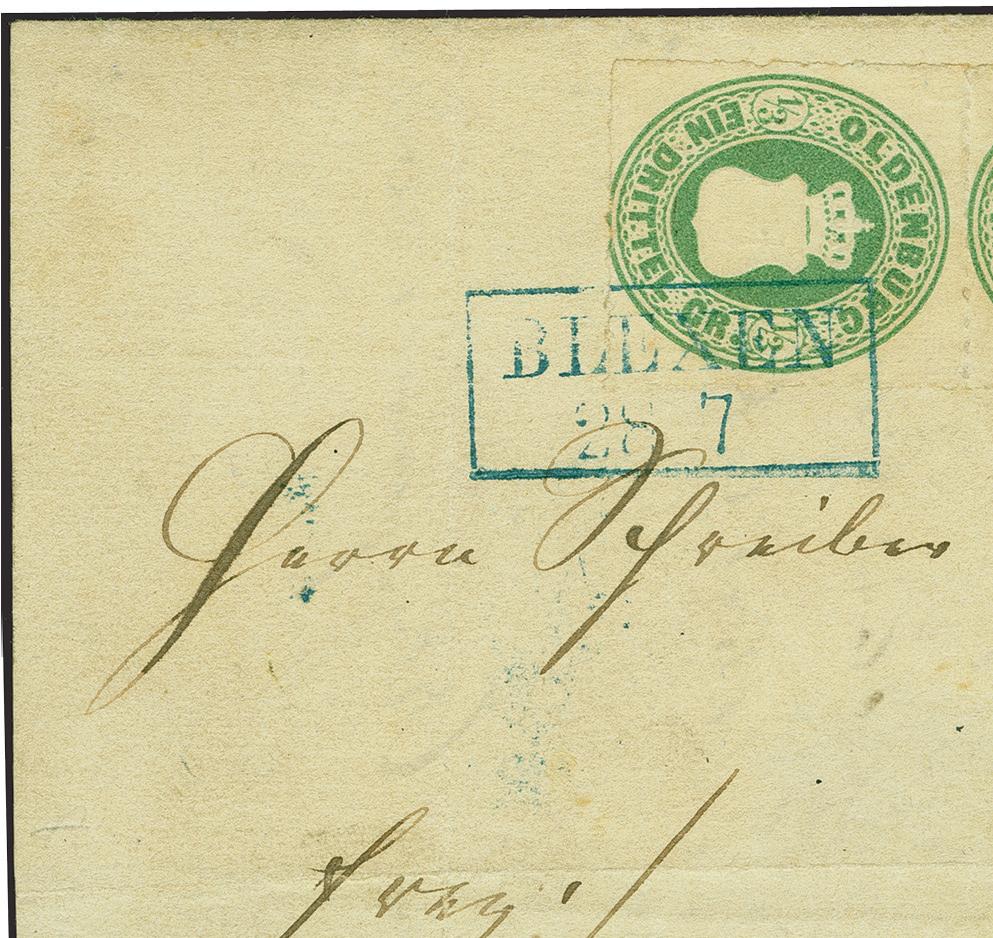 OLDENBURG
EIN DRITTEL GR.
1/3
1/3
BLEXEN
28 7
Herrn Schreiber